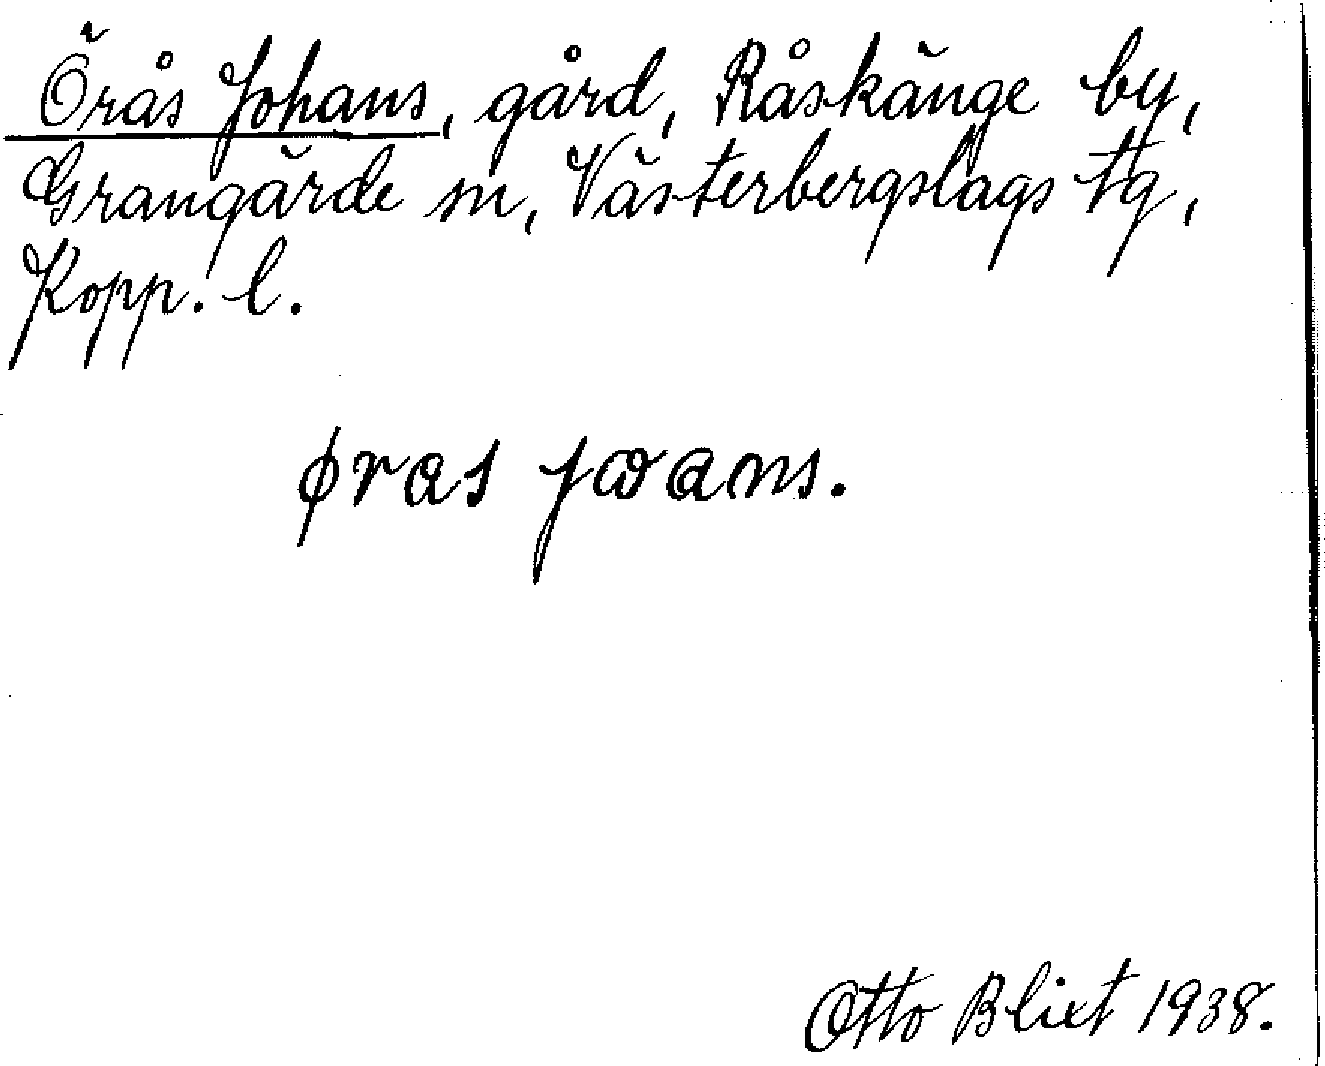 Örås Johans, gård, Råskänge by,
Grangärde sn, Västerbergslags tg,
Kopp. l.
øras jωans.
Otto Blixt 1938.